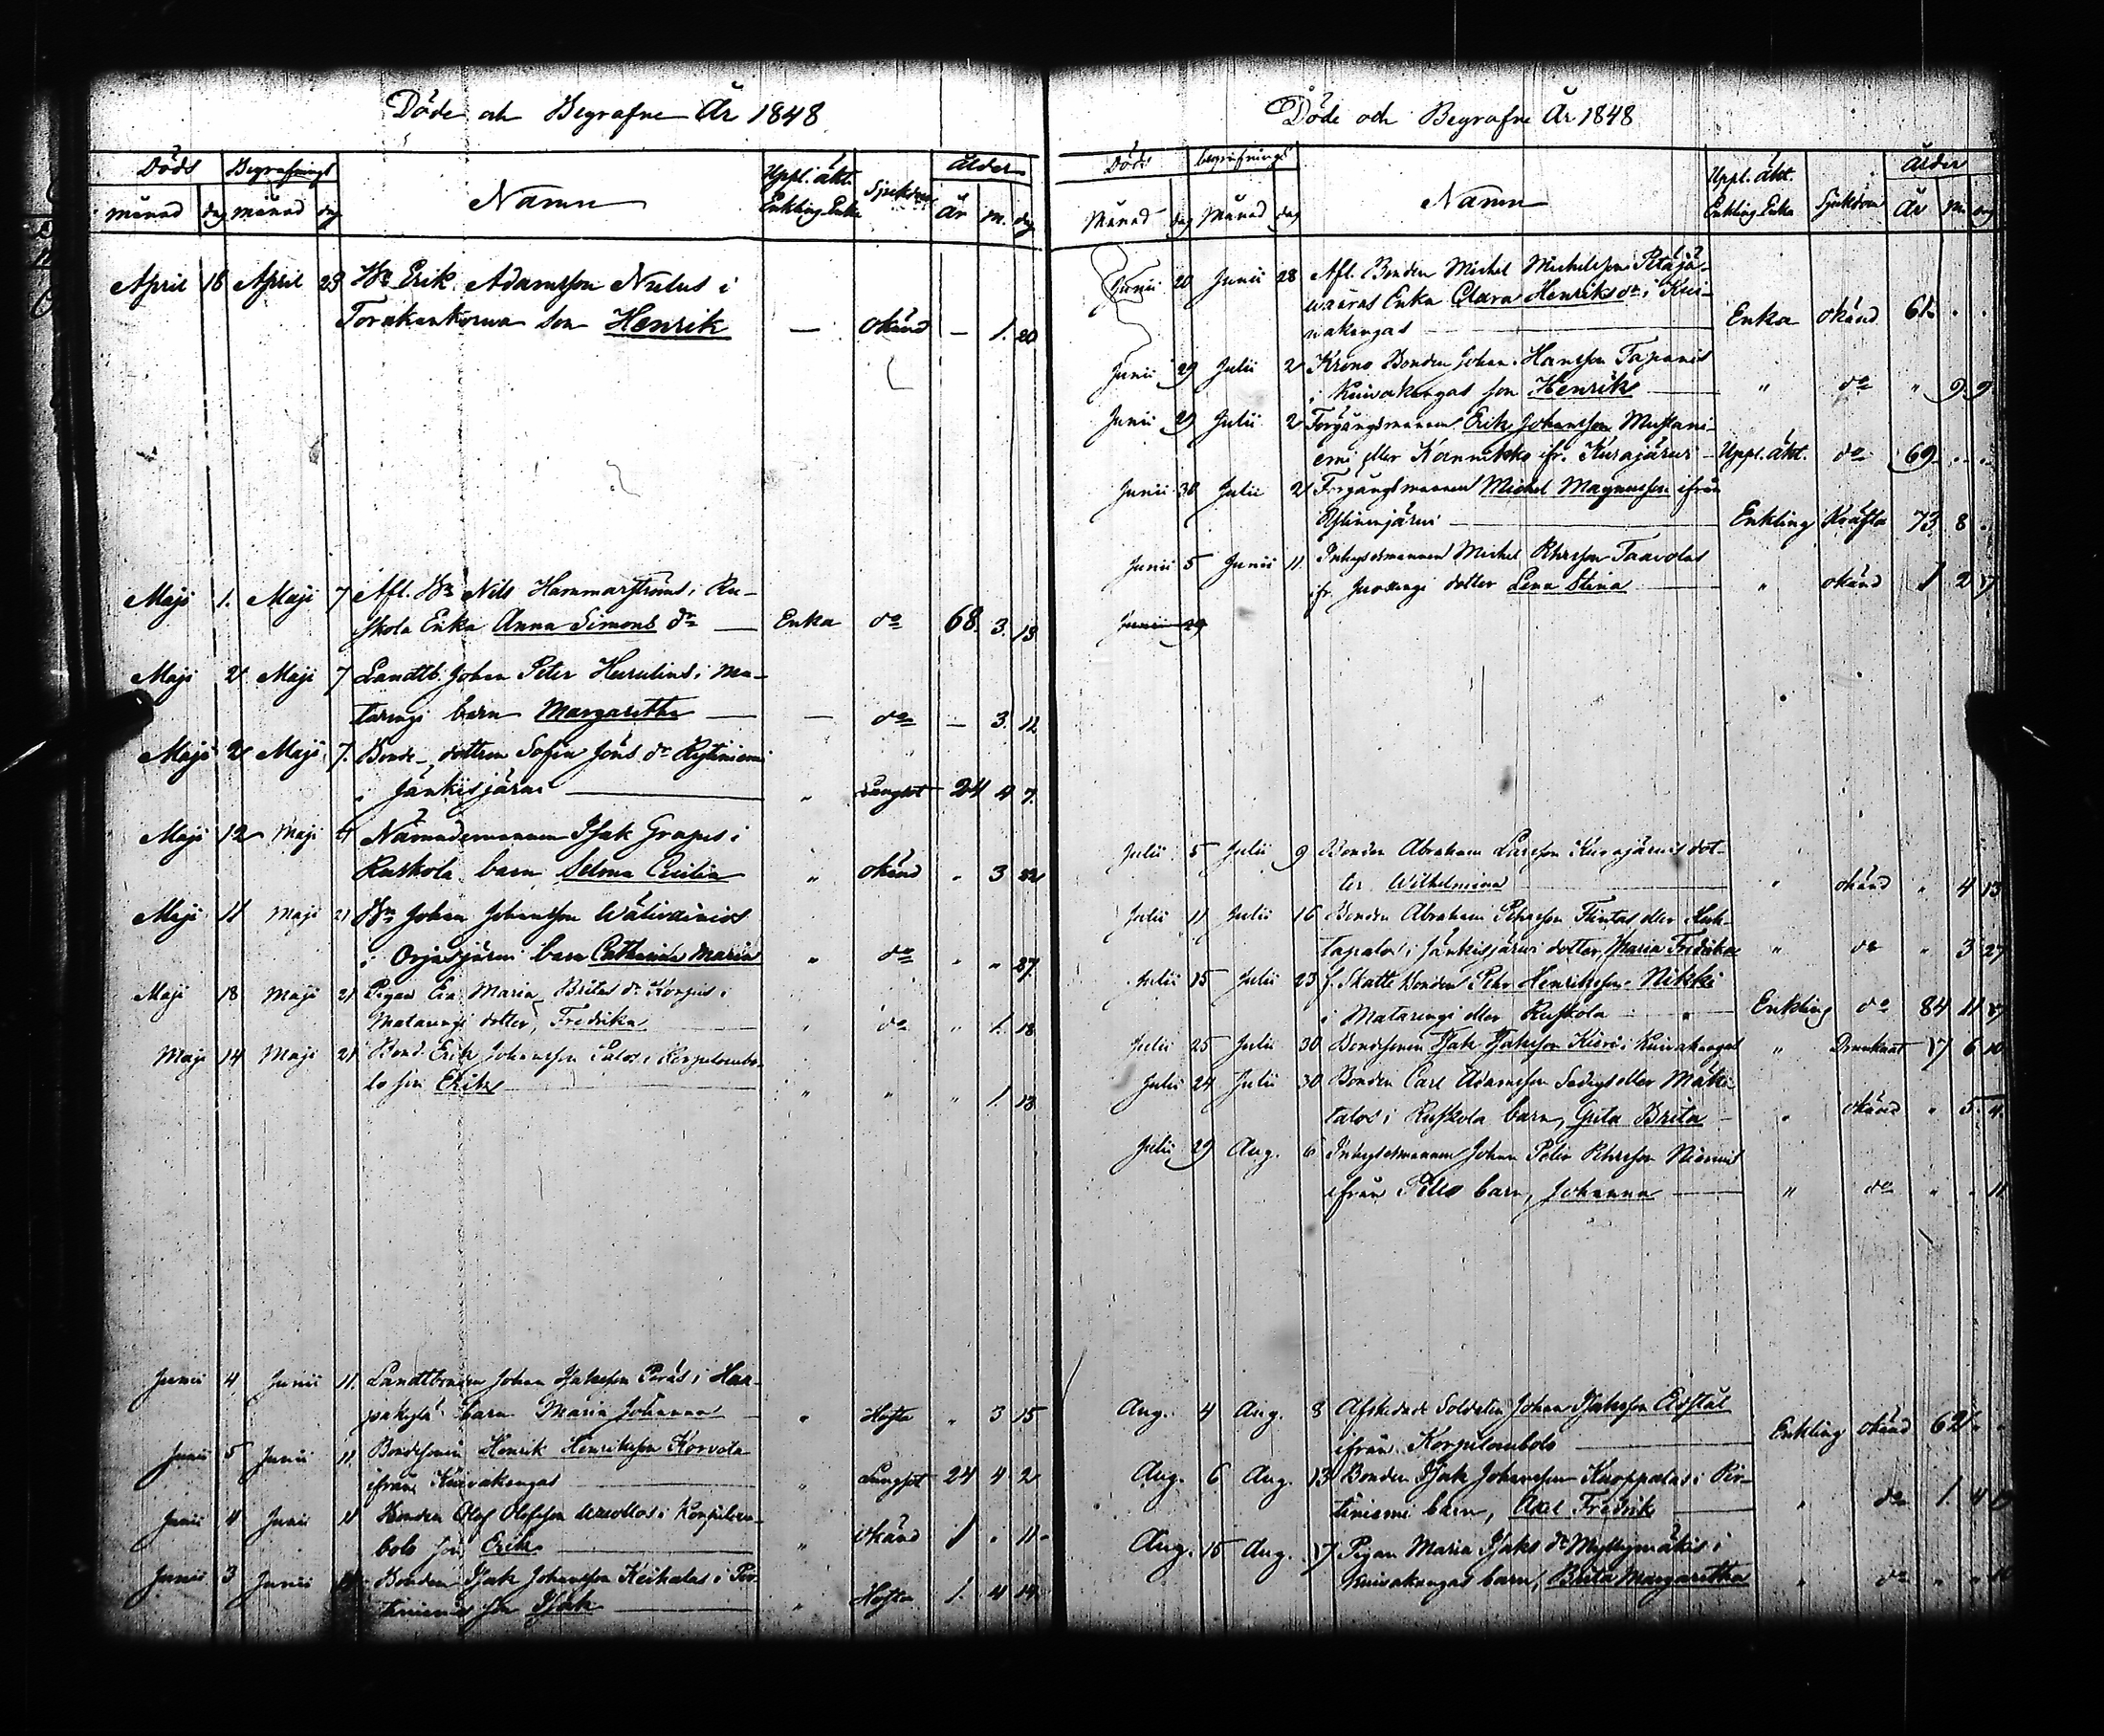 Döde och Begrafne År 1848
Döds Begrafnings Namn Uppl. äkt. Enkling Enka Sjukdom Ålder
månad dag månad dag År m. dag
April 18 April 23 Erik Adamsson Nulus i
Torakankorwa son Henrik — okänd — 1. 20
Maji 1. Maji 7 Afl. Nils Hammarströms i Ru-
skola Enka Anna Simons dr — Enka do 68. 3. 13
Maji 2 Maji 7 Landtb. Johan Peter i Ma-
tarengi barn Margaretha — — do — 3. 12
Maji 2 Maji 7. Bonde-dottren Sofia Jöns dr Kytiniemi
i Jänkisjärwi — " Lungsot 24 4 7.
Maji 12 Maji 21 Nämndemannen Isak Grapes i
Ruskola barn Selma Cecilia " okänd " 3 22
Maji 11 Maji 21 Johan Johansson
i Orjasjärwi barn Catharina Maria " do " " 27
Maji 18 Maji 21 Pigan Eva Maria Britas dr Korpis i
Matarengi dotter, Fredrika " do " 1. 18
Maji 14 Maji 21 Bond. Erik Johansson Palos i Korpilombo-
lo son Erik " " " 1. 13
Junii 4 Junii 11. Landtbonden Johan Isaksson Peräs i Haa-
pakylä barn Maria Johanna — " Hosta " 3 15
Junii 5 Junii 11. Bondesonen Henrik Henriksson Korvola
ifrån Kuivakangas — " Lungsot 24 4 2
Junii 4 Junii 11 Bonden Olof Olofsson i Korpilom-
bolo son Erik — " okänd 1 " 11
Junii 3 Junii Bonden Isak Johansson Keikalas i Per-
tiniemi son Isak — " Hosta 1. 4 14
Döde och Begrafne År 1848
Döds begrafnings Namn Uppl. äkt. Enkling Enka Sjukdom Ålder
Månad dag Månad dag År m. dag
Junii 20 Junii 28 Afl. Bonden Michel Michelsson Petäjä-
waaras Enka Clara Henriks dr i Kui-
wakangas — Enka okänd 61 . .
Junii 29 Julii 2 Krono Bonden Johan Hansson Tapanis
i Kuivakangas son Henrik — " do " 9 9
Junii 29 Julii 2 Förgångsmannen Erik Johansson Mustani-
emi eller Kannikko ifr. Kurajärwi — Uppl. äkt. do 69 . .
Junii 30 Julii 2 Förgångsmannen Michel Magnusson ifrån
— Enkling Kräfta 73 8 .
Junii 5 Junii 11 Inhysesmannen Michel Pehrsson Taavolas
ifr. Juoxengi dotter Lena Stina — " okänd 1 2 7
Junii 29
Julii 5 Julii 9 Bonden Abraham Larsson Kurajärwis dot-
ter Wilhelmina — " okänd " 4 13
Julii 11 Julii 16 Bonden Abraham Pehrsson eller
i Jänkisjärwi dotter, Maria Fredrika " do " 3 27
Julii 15 Julii 23 f. Skatte Bonden Pehr Henriksson Nikki
i Matarengi eller Ruskola — Enkling do 84 11 7
Julii 25 Julii 30 Bondesonen Isak Isaksson Kieri i Kuivakangas " Drunknat 17 6 10
Julii 24 Julii 30 Bonden Carl Adamsson eller Mäki-
talos i Ruskola barn, Greta Brita — " okänd " 5. 4.
Julii 29 Aug. 6 Inhysesmannen Johan Peter Pehrsson Niemis
ifrån Pello barn, Johanna — " do " . 11
Aug. 4 Aug. 8 Afskedade Soldaten Johan Isaksson
ifrån Korpilombolo — Enkling okänd 62 " "
Aug. 6 Aug. 13 Bonden Isak Johansson Kuoppalas i Per-
tiniemi barn, Axel Fredrik — " do 1. 4
Aug. 15 Aug. 17 Pigan Maria Isaks dr Myllymäkis i
Kuivakangas barn, Brita Margaretha " do " "